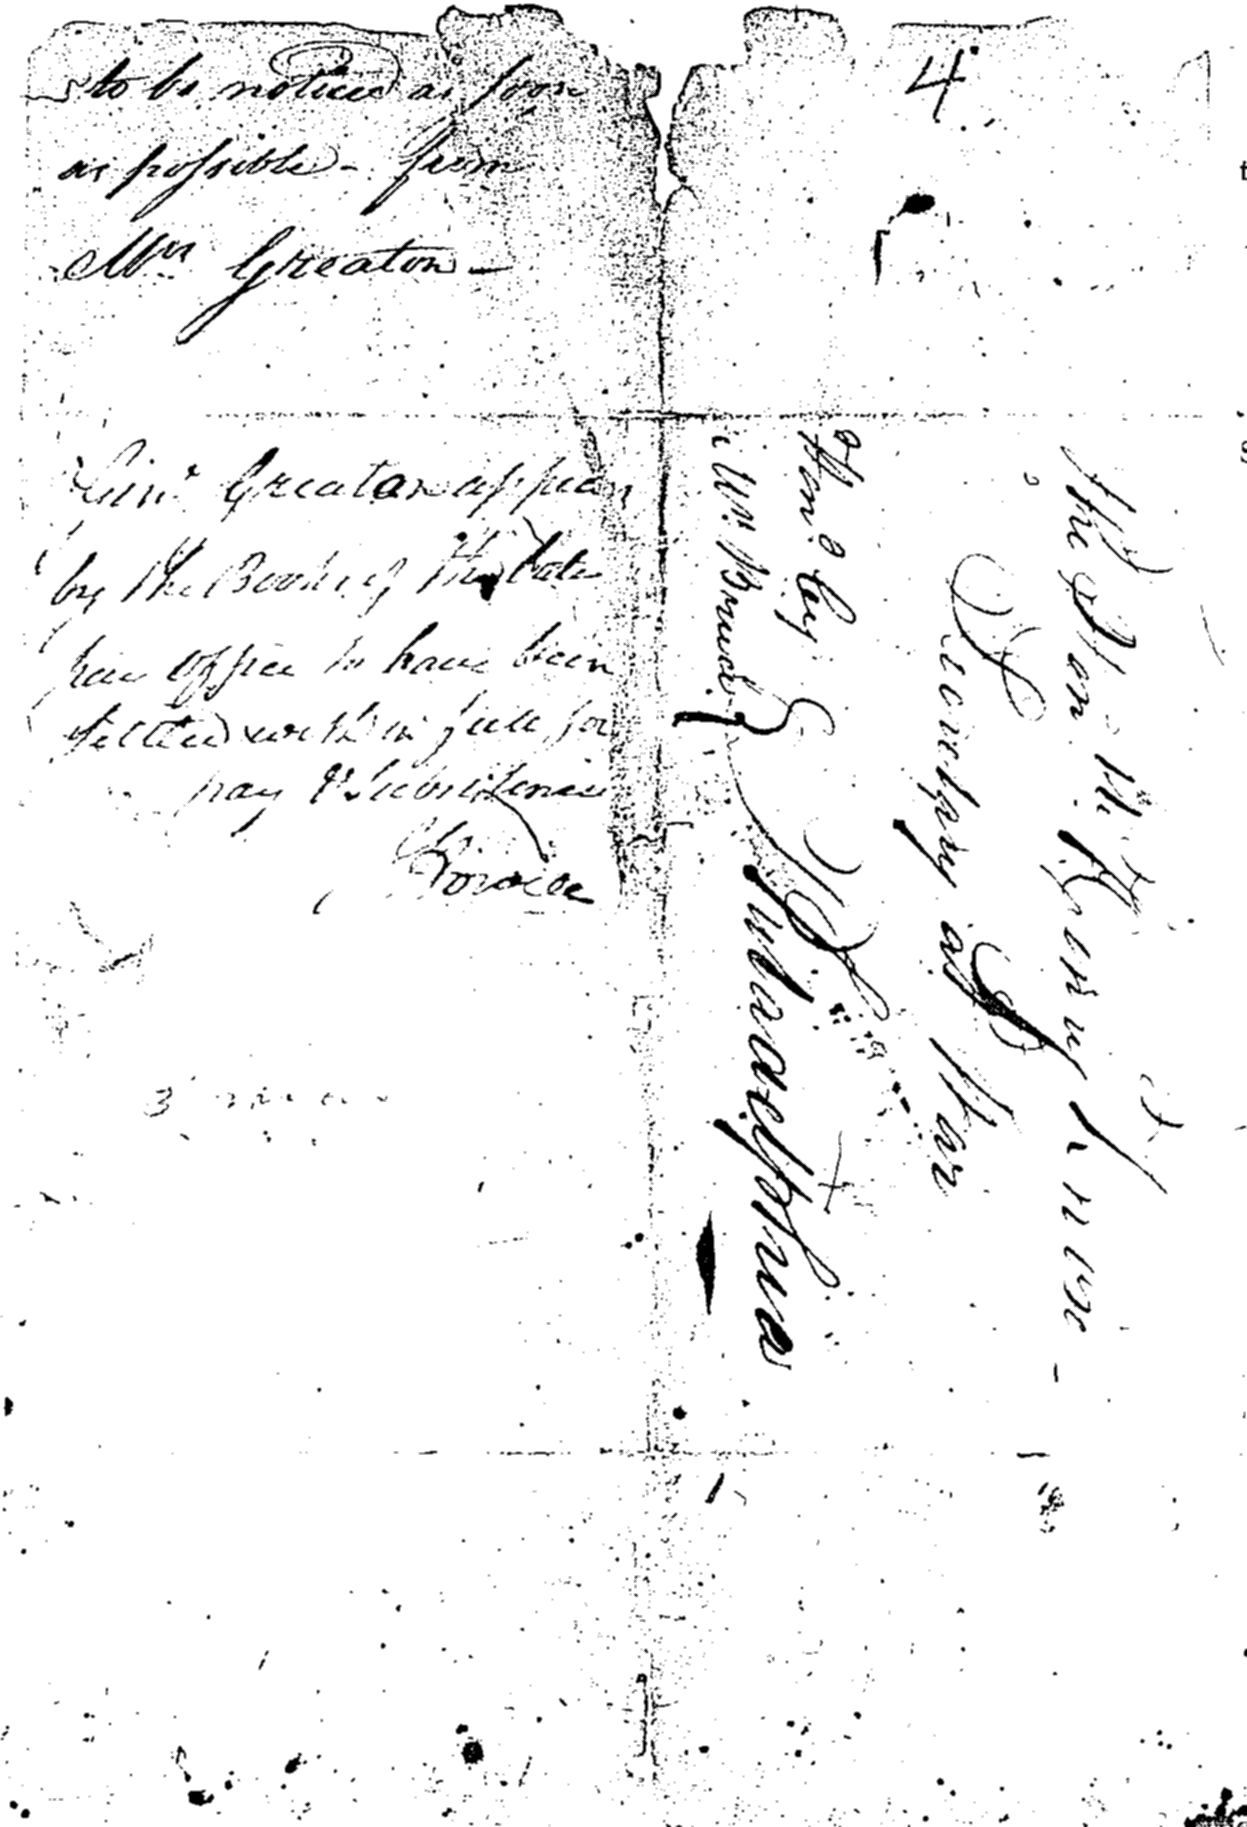 4
to be noticed as soon
as possible - from
Mrs Greaton -
Genl Greaton appears
by the Books of the late
pay Office to have been
settled with in full for
pay & Subsistence
The Hon Mr Henry Knox
Secretary at War
Philadelphia
Hond by
Mr Bruce